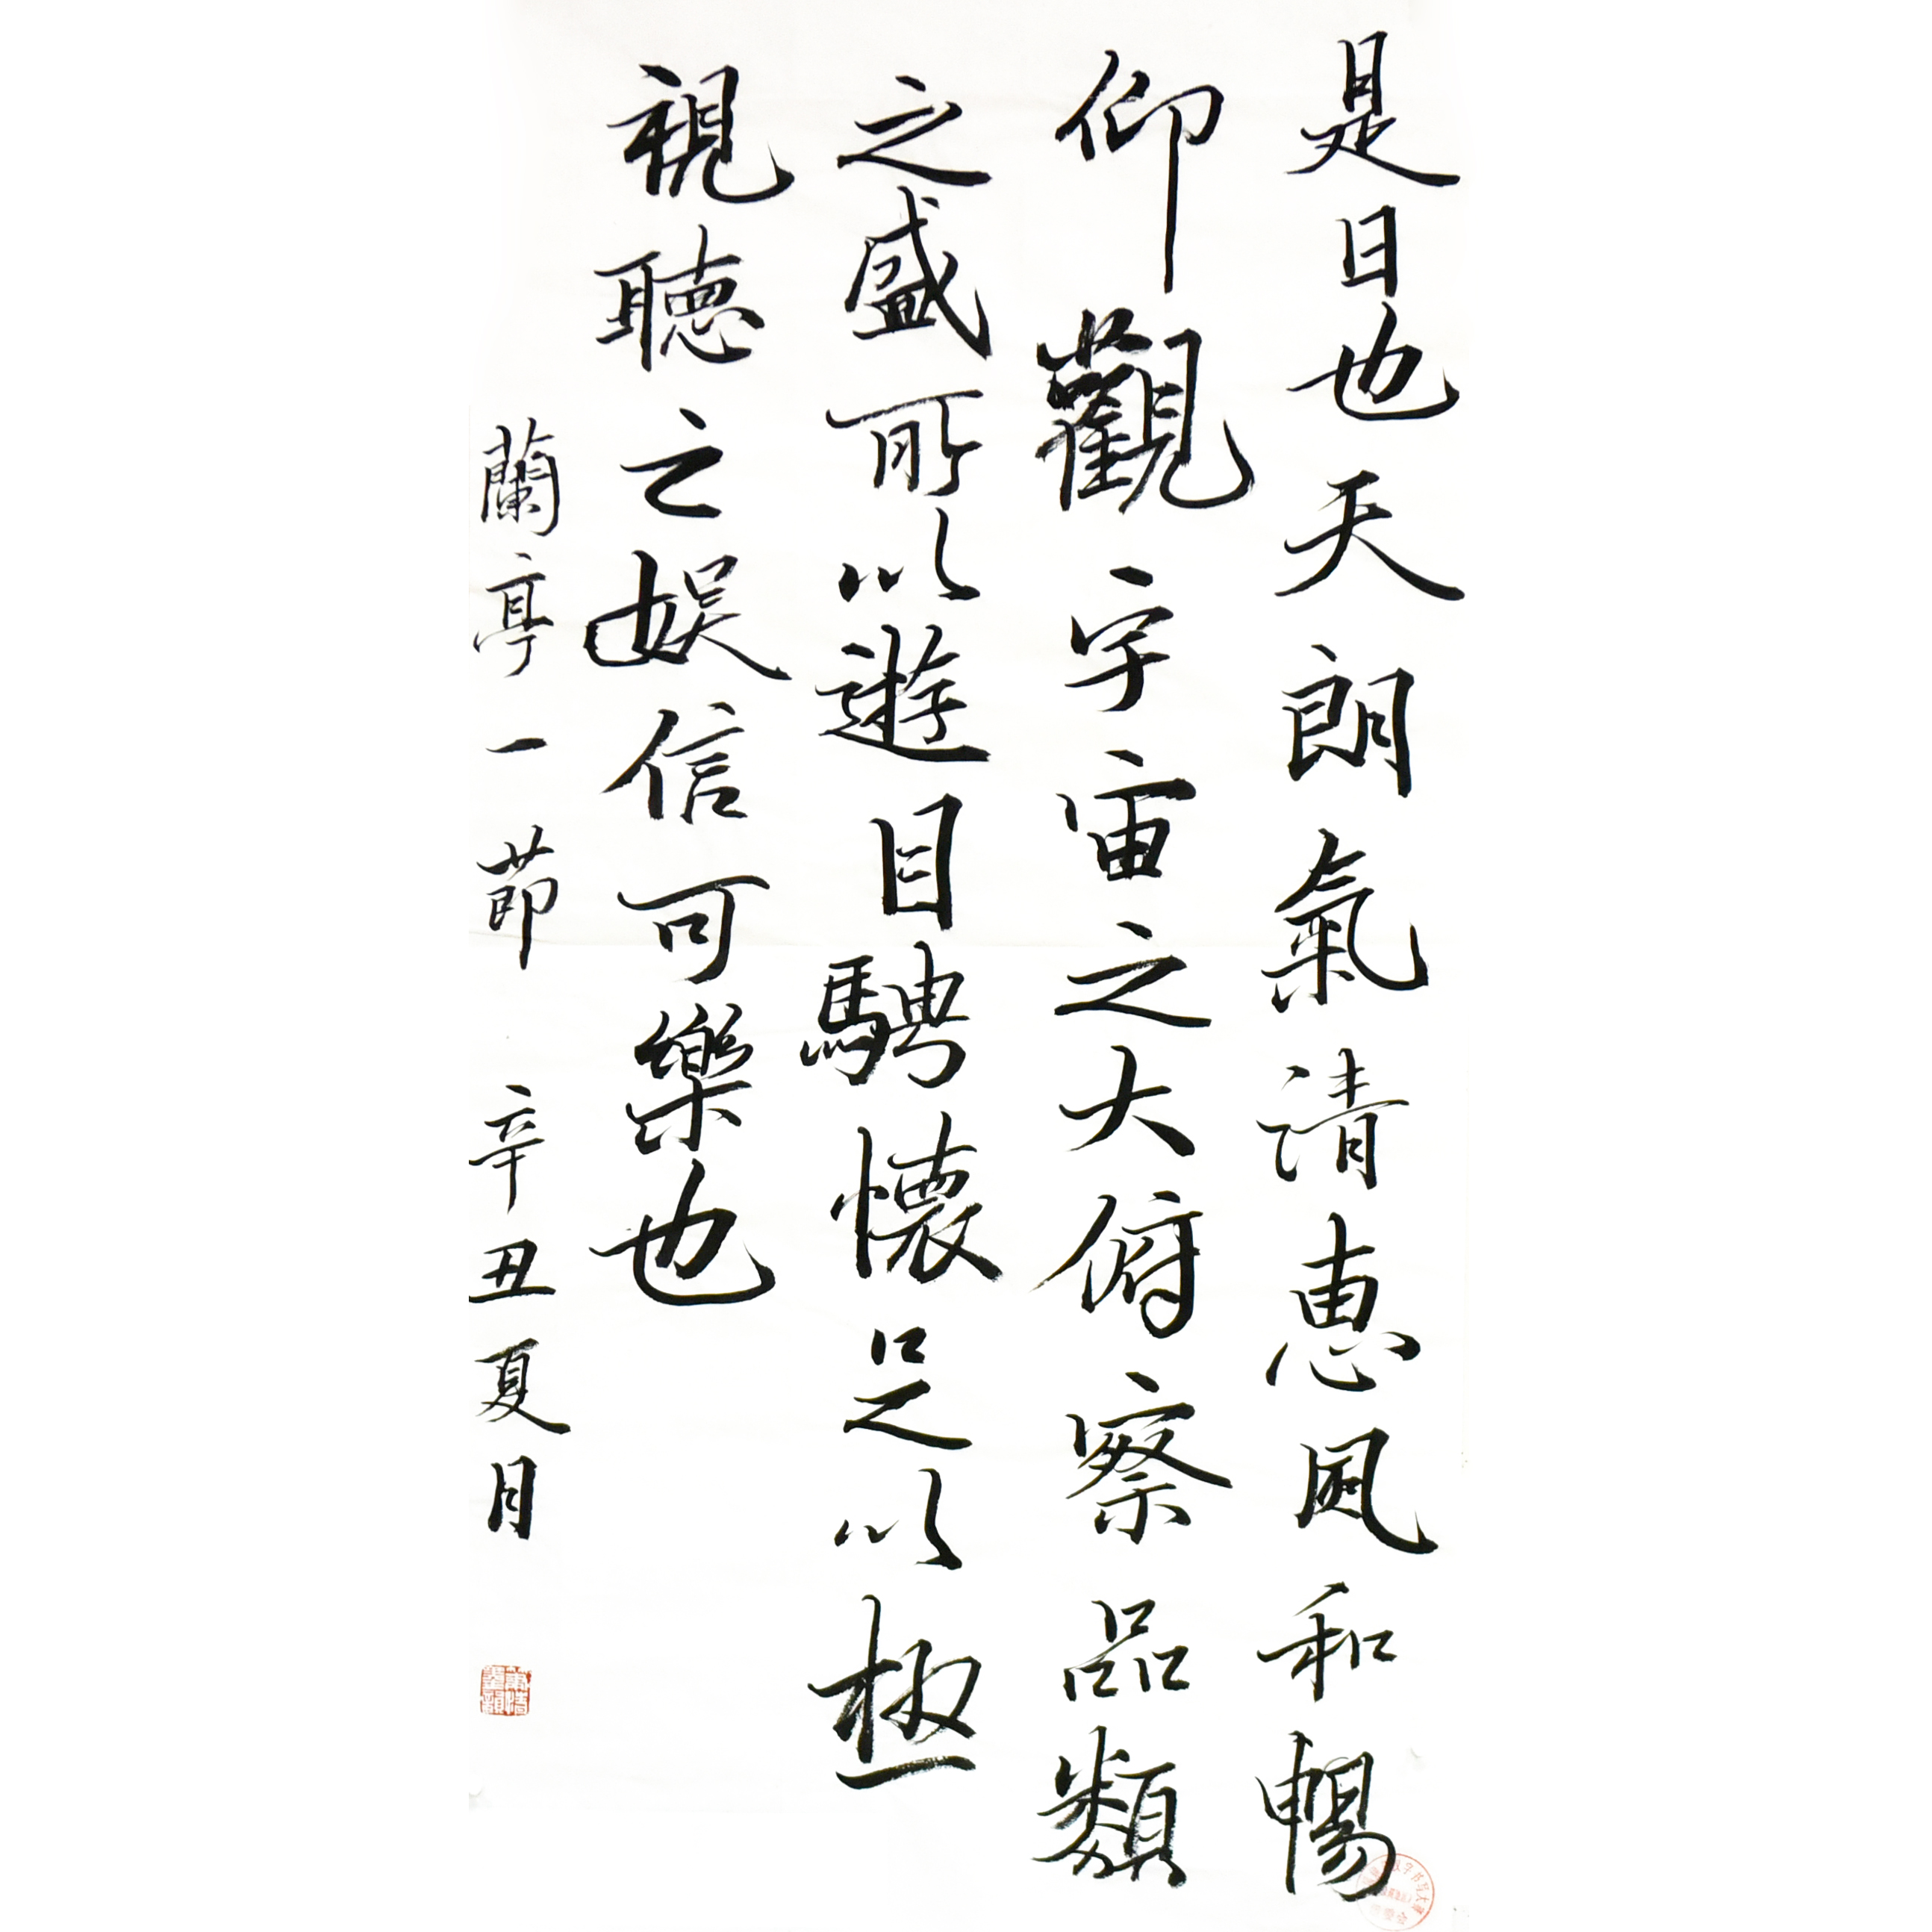 是日也天朗氣清惠風和暢
仰觀宇宙之大俯察品類
之盛所以遊目騁懷足以極
視聽之娛信可樂也
蘭亭一節 辛丑夏月